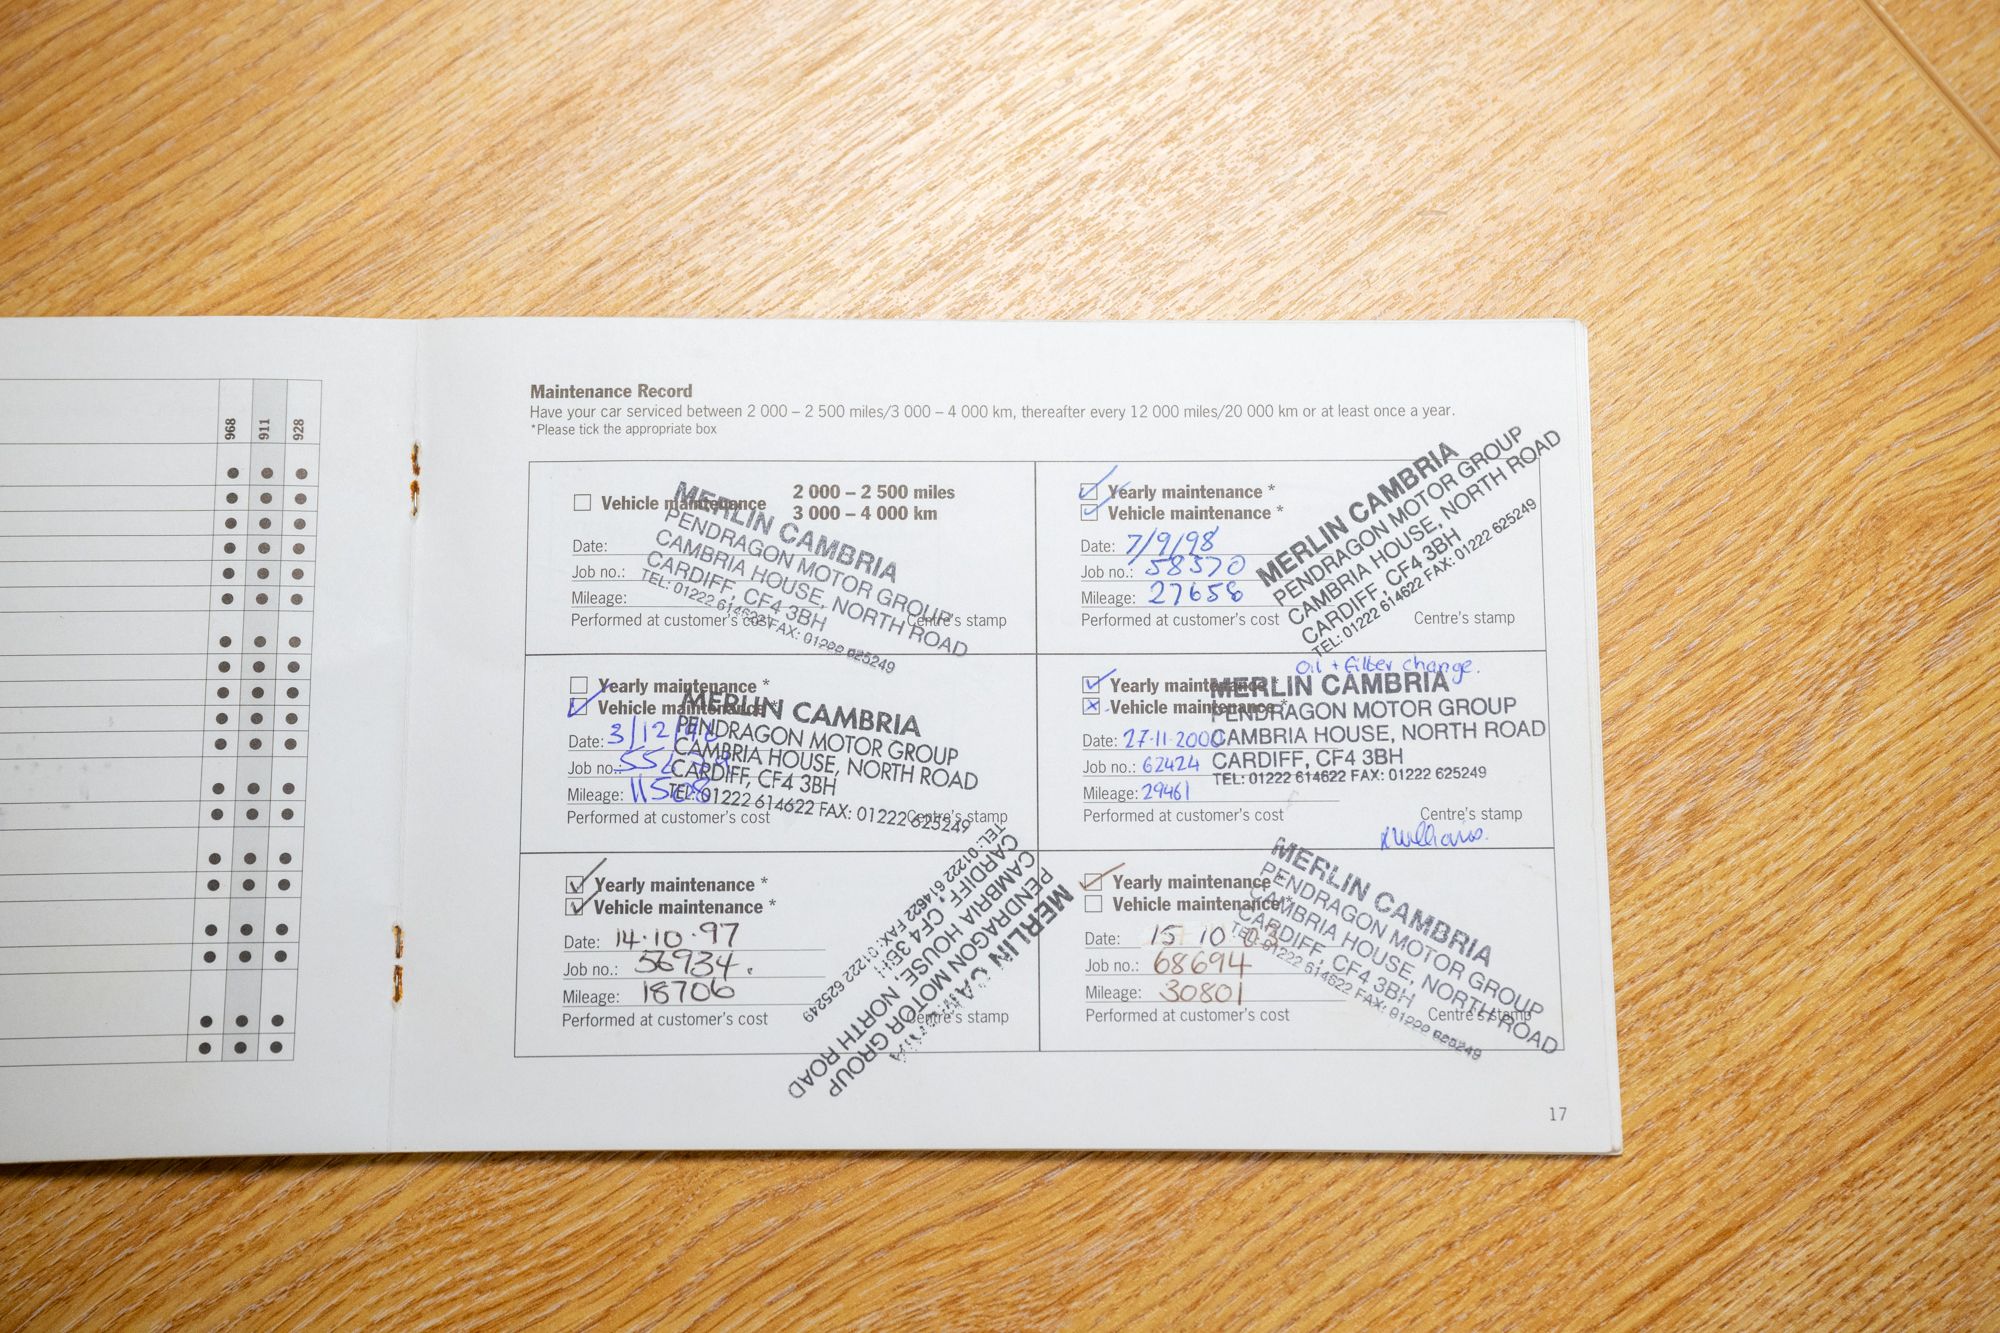 968
911
928
Maintenance Record
Have your car serviced between 2 000 – 2 500 miles/3 000 – 4 000 km, thereafter every 12 000 miles/20 000 km or at least once a year.
*Please tick the appropriate box
Vehicle maintenance
2 000 – 2 500 miles
3 000 – 4 000 km
Date:
Job no.:
Mileage:
Performed at customer's cost
Centre's stamp
MERLIN CAMBRIA
PENDRAGON MOTOR GROUP
CAMBRIA HOUSE, NORTH ROAD
CARDIFF, CF4 3BH
TEL: 01222 614622 FAX: 01222 625249
Yearly maintenance *
Vehicle maintenance *
Date: 3/12/
Job no.:
Mileage: 11508
Performed at customer's cost
Centre's stamp
MERLIN CAMBRIA
PENDRAGON MOTOR GROUP
CAMBRIA HOUSE, NORTH ROAD
CARDIFF, CF4 3BH
TEL: 01222 614622 FAX: 01222 625249
Yearly maintenance *
Vehicle maintenance *
Date: 14·10·97
Job no.: 56934.
Mileage: 18706
Performed at customer's cost
Centre's stamp
MERLIN CAMBRIA
PENDRAGON MOTOR GROUP
CAMBRIA HOUSE, NORTH ROAD
CARDIFF, CF4 3BH
TEL: 01222 614622 FAX: 01222 625249
Yearly maintenance *
Vehicle maintenance *
Date: 7/9/98
Job no.: 58370
Mileage: 27658
Performed at customer's cost
Centre's stamp
MERLIN CAMBRIA
PENDRAGON MOTOR GROUP
CAMBRIA HOUSE, NORTH ROAD
CARDIFF, CF4 3BH
TEL: 01222 614622 FAX: 01222 625249
oil + filter change.
Yearly maintenance *
Vehicle maintenance *
Date: 27·11·2000
Job no.: 62424
Mileage: 29461
Performed at customer's cost
Centre's stamp
MERLIN CAMBRIA
PENDRAGON MOTOR GROUP
CAMBRIA HOUSE, NORTH ROAD
CARDIFF, CF4 3BH
TEL: 01222 614622 FAX: 01222 625249
Yearly maintenance *
Vehicle maintenance *
Date: 15 10
Job no.: 68694
Mileage: 30801
Performed at customer's cost
Centre's stamp
MERLIN CAMBRIA
PENDRAGON MOTOR GROUP
CAMBRIA HOUSE, NORTH ROAD
CARDIFF, CF4 3BH
TEL: 01222 614622 FAX: 01222 625249
17